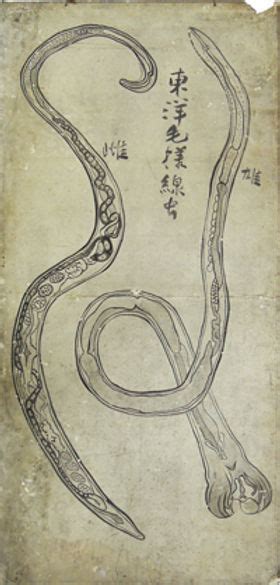 東洋毛様線虫
雌
雄